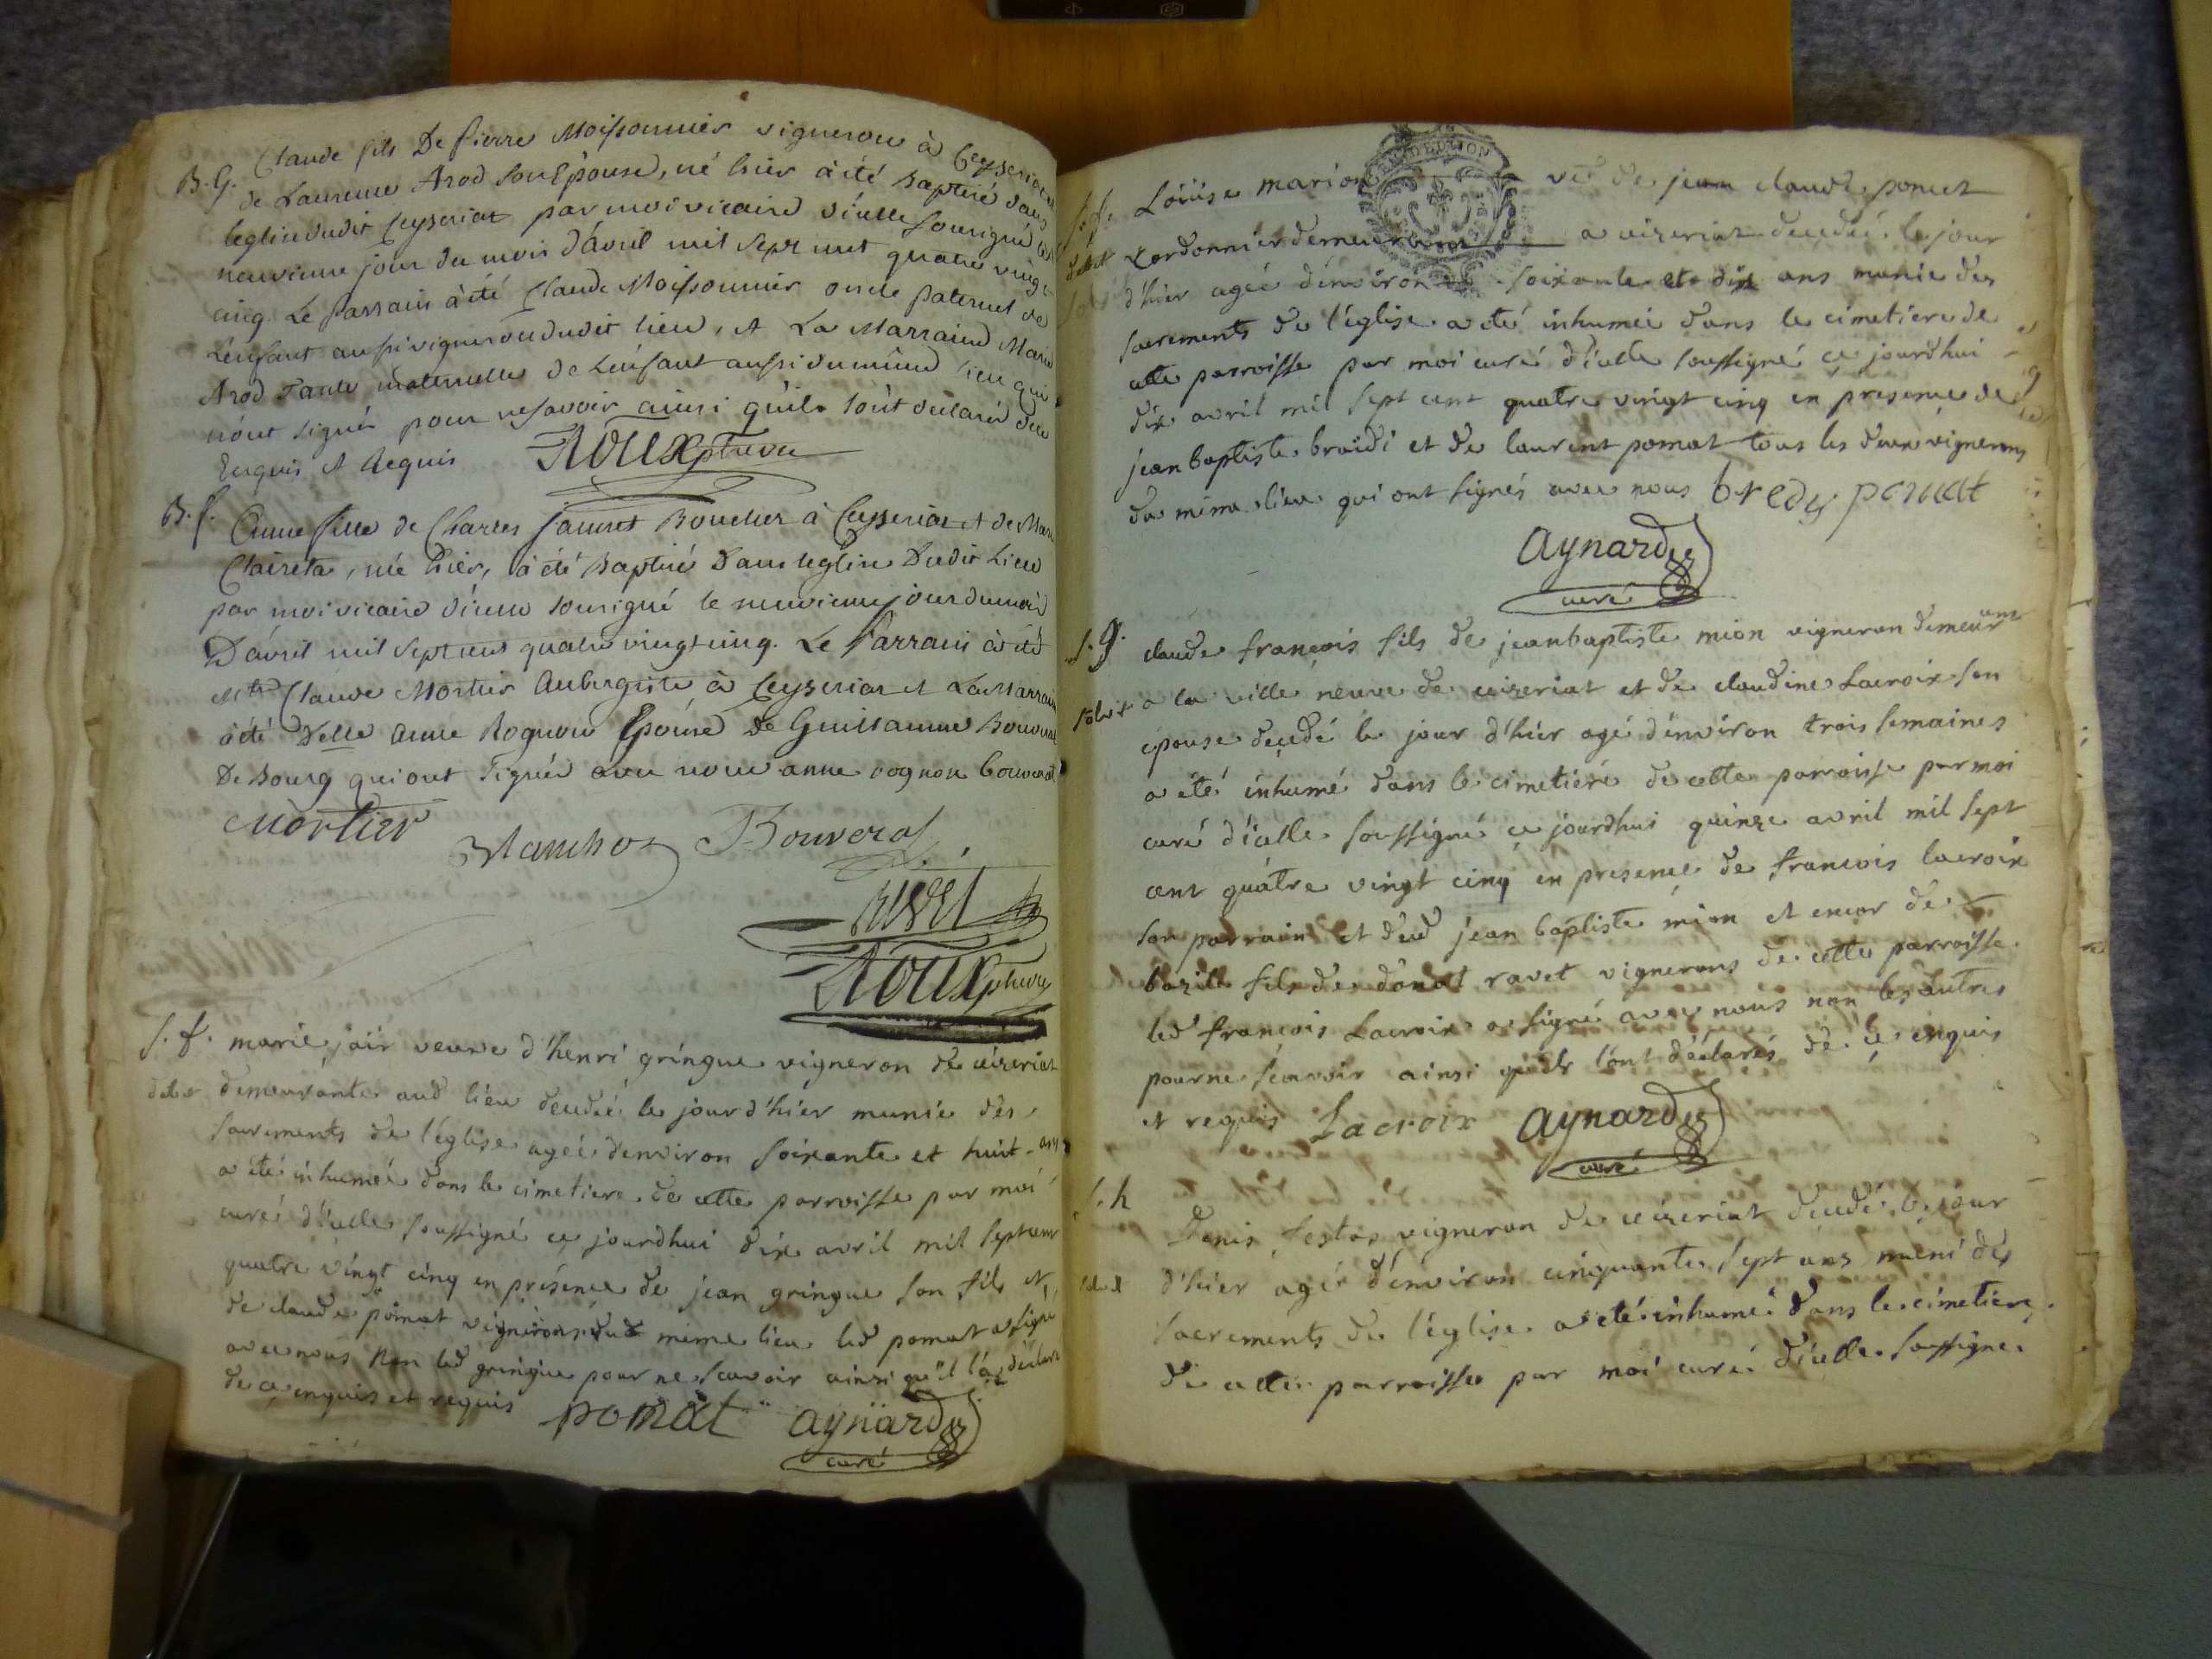 B.G. Claude fils De pierre Moissonnier vigneron à Ceyseriat
de Laurence Arod son Epouse, né hier à été Baptisé dans
leglise dudit Ceyseriat par moi vicaire d'icelle sousigné le
neuvieme jour du mois d'avril mil sept cent quatre vingt
cinq. Le Parrain à été Claude Moissonnier oncle paternel de
L'enfant aussi vigneron dudit lieu, et La Marraine Marie
Arod Tante maternelle de L'enfant aussi du même lieu qui
n'ont signés pour ne savoir ainsi qu'ils l'ont déclaré de ce
Enquis et Requis Roux ptre vic
B.f. Anne fille de Charles jannet Boucher à Ceyseriat et de Marie
Claireta, née hier, à été Baptisé Dans leglise Dudit Lieu
par moi vicaire d'icelle sousigné le neuvieme jour du mois
D'avril mil sept cent quatre vingt cinq. Le Parrain à été
Mtre Claude Mortier Aubergiste à Ceyseriat et La Marraine
à été Delle Anne Rognon Epouse de Guillaume Bouverat
De Bourg qui ont signés avec nous anne rognon bouverat
Mortier Bouverat
Roux ptre vic
S. f. marie jair veuve d'henri gringue vigneron de ceizeriat
debet demeurante aud lieu decedée le jour d'hier munie des
sacrements de l'église ageé denviron soixante et huit ans
a été inhumeé dans le cimetiere de cette parroisse par moi
curé d'icelle soussigné ce jourdhui dix avril mil sept cent
quatre vingt cinq en présence de jean gringue son fils et
de claude pomat vignerons du meme lieu led pomat a signé
avec nous non led gringue pour ne scavoir ainsi qu'il l'a déclaré
de ce enquis et requis pomat aynard
curé
S.f. Loüise marion ve de jean claude poncet
debet cordonnier demeurant a ceizeriat decedeé le jour
d'hier ageé d'environ soixante et dix ans munie des
sacrements de l'église a été inhumeé dans le cimetiere de
cette parroisse par moi curé d'icelle soussigné ce jourdhui
dix avril mil sept cent quatre vingt cinq en presence de
jean baptiste braidi et de laurent pomat tous les deux vignerons
du meme lieu qui ont signés avec nous bredy pomat
aynard
curé
S. g. claude françois fils de jean baptiste mion vigneron demeurant
solvit a la ville neuve de ceizeriat et de claudine Lacroix son
epouse decedé le jour d'hier agé d'environ trois semaines
a été inhumé dans le cimetiere de cette parroisse par moi
curé d'icelle soussigné ce jourdhui quinze avril mil sept
cent quatre vingt cinq en presence de francois lacroix
son parrain et dud jean baptiste mion et encor de
bazile fils de donat ravet vignerons de cette parroisse
led françois Lacroix a signé avec nous non les autres
pour ne scavoir ainsi qu'ils l'ont déclarés de ce enquis
et requis Lacroix aynard
curé
S. h Denis festas vigneron de ceizeriat decedé le jour
d'hier agé d'environ cinquante sept ans muni des
sacrements de l'église a été inhumé dans le cimetiere
de cette parroisse par moi curé d'icelle soussigné